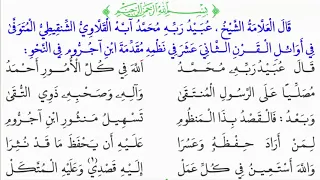 بِسْمِ اللَّهِ الرَّحْمَنِ الرَّحِيمِ
قَالَ العَلَّامَةُ الشَّيْخُ، عُبَيْدُ رَبِّهِ مُحَمَّدُ ابْهُ القَلَّاوِيُّ الشَّنْقِيطِيُّ المُتَوَفَّى
فِي أَوَائِلِ القَرْنِ الثَّانِي عَشَرَ فِي نَظْمِهِ مُقَدِّمَةَ ابْنِ آجُرُّومَ فِي النَّحْوِ:
قَالَ عُبَيْدُ رَبِّهِ مُحَمَّدُ اللَّهَ فِي كُلِّ الأُمُورِ أَحْمَدُ
مُصَلِّيًا عَلَى الرَّسُولِ المُنْتَقَى وَآلِهِ وَصَحْبِهِ ذَوِي التُّقَى
وَبَعْدُ: فَالقَصْدُ بِذَا المَنْظُومِ تَسْهِيلُ مَنْثُورِ ابْنِ آجُرُّومِ
لِمَنْ أَرَادَ حِفْظَهُ وَعَسُرَا عَلَيْهِ أَنْ يَحْفَظَ مَا قَدْ نُثِرَا
وَاللَّهَ أَسْتَعِينُ فِي كُلِّ عَمَلْ إِلَيْهِ قَصْدِي وَعَلَيْهِ المُتَّكَلْ